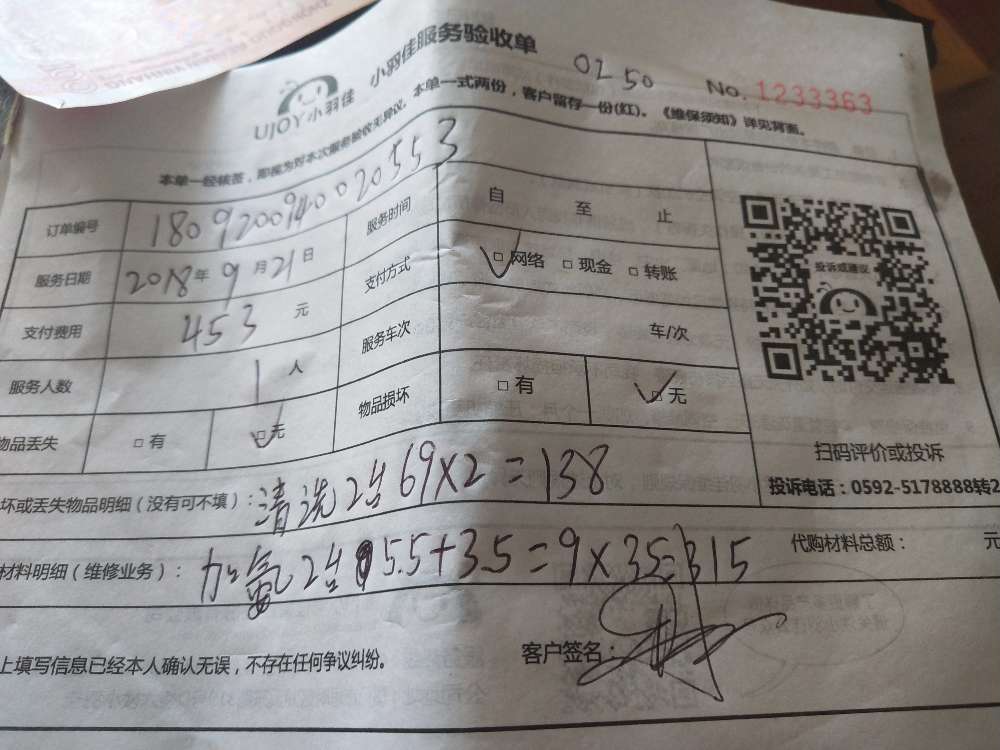 小羽佳服务验收单
UJOY小羽佳
0250
No. 1233363
本单一经核签，即视为对本次服务验收无异议。本单一式两份，客户留存一份(红)。《维保须知》详见背面。
订单编号 18092009400020553 服务时间 自 至 止
服务日期 2018年9月21日 支付方式 □网络 □现金 □转账
支付费用 453 元 服务车次 车/次
服务人数 1 人 物品损坏 □有 □无
物品丢失 □有 □无
投诉或建议
扫码评价或投诉
投诉电话：0592-5178888转2
坏或丢失物品明细（没有可不填）：清洗2台 69×2=138
材料明细（维修业务）：加氨2台 5.5+3.5=9×35=315 代购材料总额： 元
上填写信息已经本人确认无误，不存在任何争议纠纷。 客户签名：